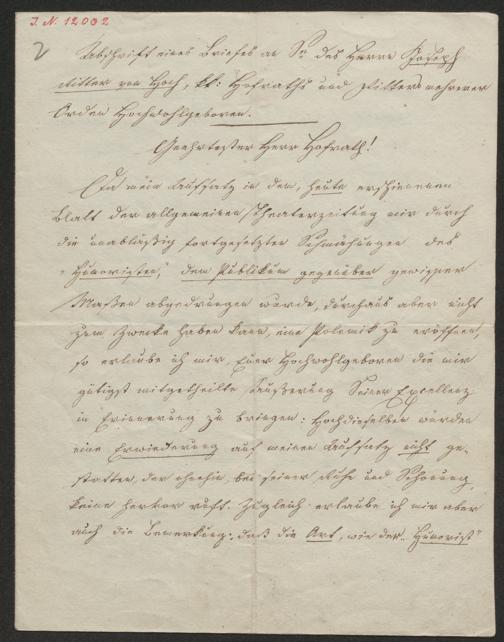 J. N. 12002
2
Abschrift eines Briefes an Sr. des Herrn Joseph
Ritter von Hoch, kk: Hofraths und Ritters mehrerer
Orden Hochwohlgeboren.
Geehrtester Herr Hofrath!
Da mein Aufsatz in dem, heute erschienenen
Blatt der allgemeinen Theaterzeitung mir durch
die unablässig fortgesetzten Schmähungen des
"Humoristen", dem Publikum gegenüber gewisser
Maßen abgedrungen wurde, durchaus aber nicht
zum Zwecke haben kann, eine Polemik zu eröffnen,
so erlaube ich mir, Euer Hochwohlgeboren die mir
gütigst mitgetheilte Äußerung Seiner Excellenz
in Erinnerung zu bringen: Hochdieselben würden
eine Erwiederung auf meinen Aufsatz nicht ge-
statten, der ohnehin, bei seiner Ruhe und Schonung,
keine hervor ruft. Zugleich erlaube ich mir aber
auch die Bemerkung: daß die Art, wie der "Humorist"